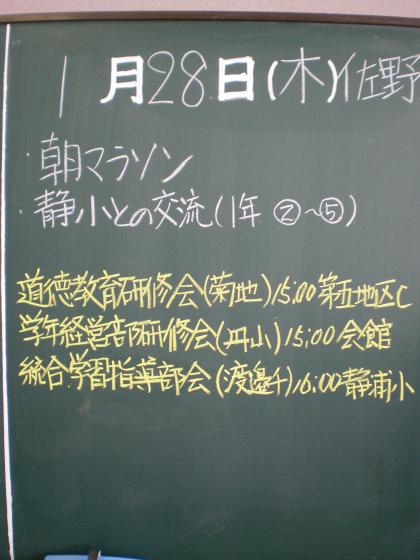 1月28日(木)佐野
朝マラソン
静小との交流(1年 ②〜⑤)
道徳教育研修会(菊地)15:00第五地区C
学年経営部研修会(丹山)15:00会館
統合学習指導部会(渡邊千)16:00静浦小